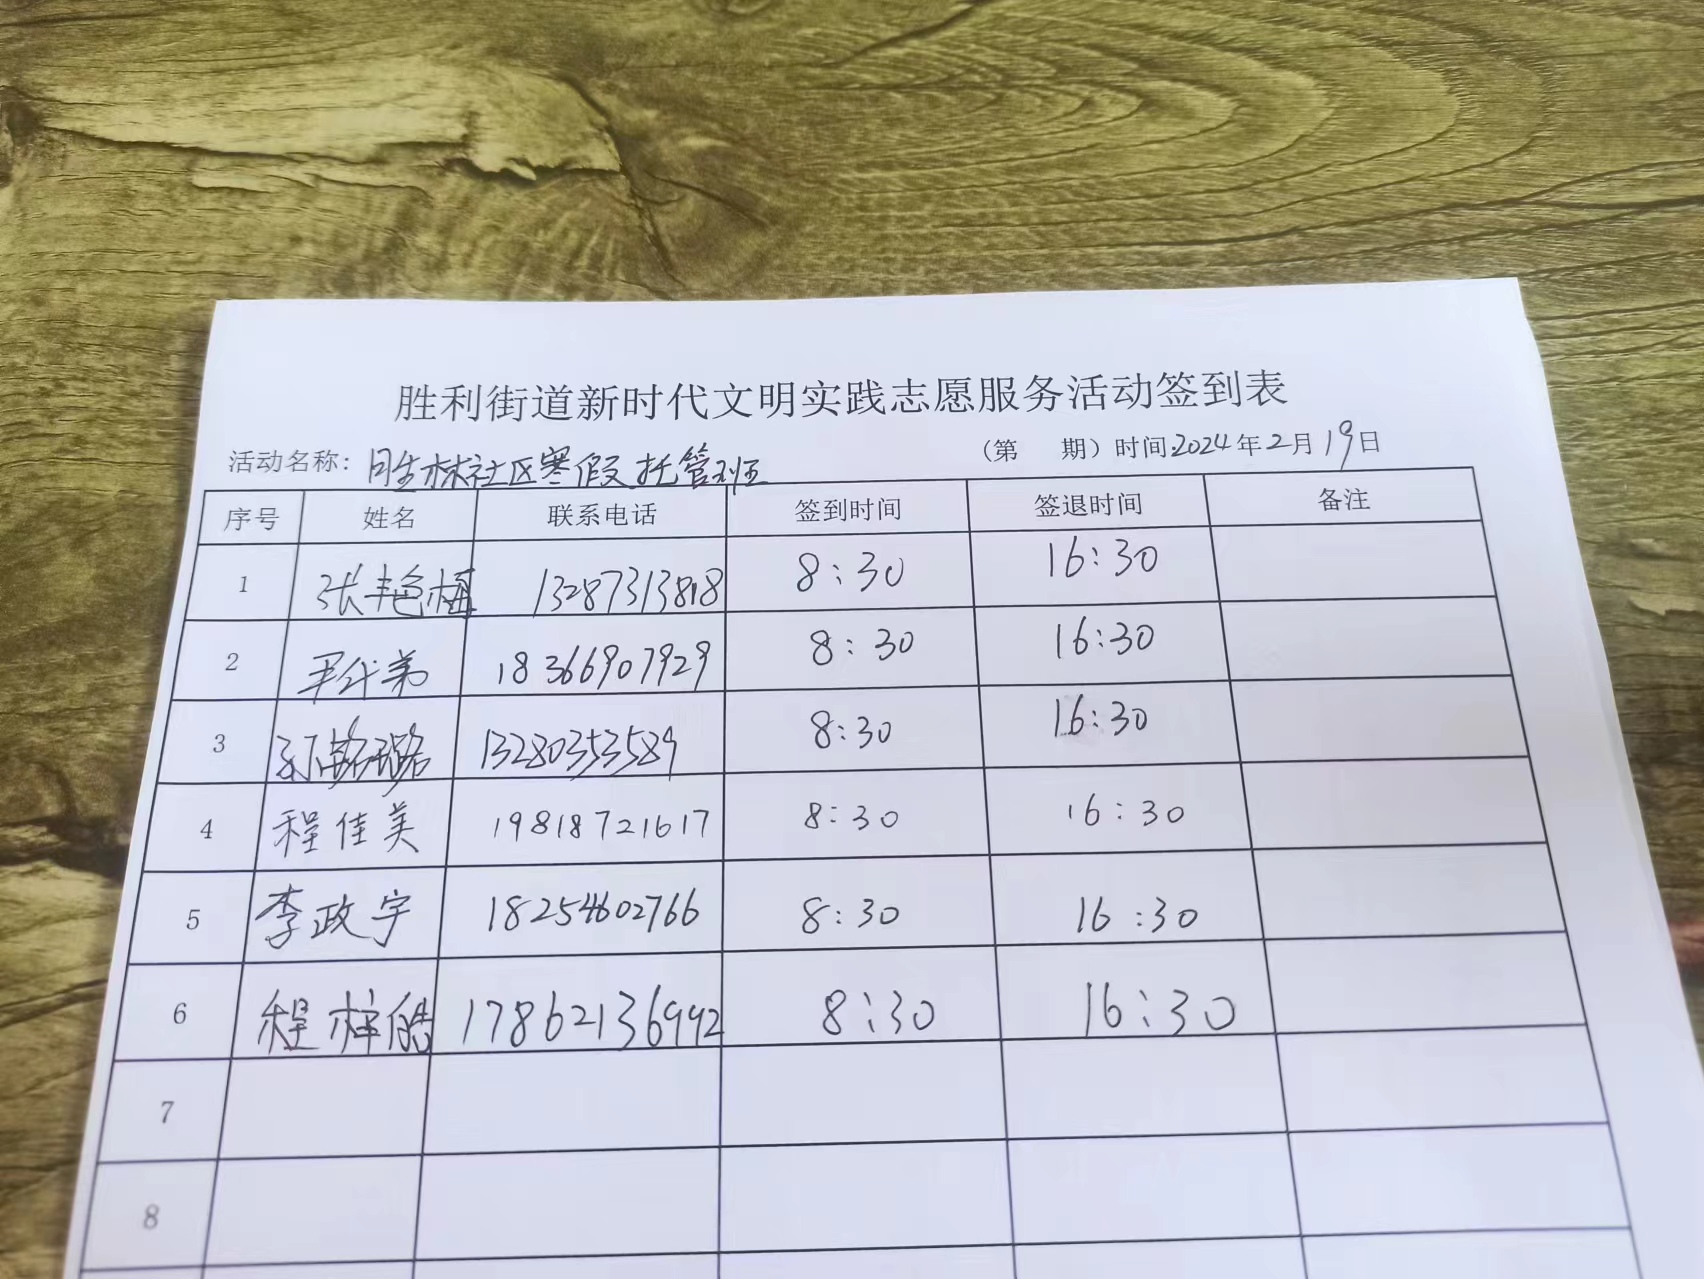 胜利街道新时代文明实践志愿服务活动签到表
活动名称：胜林社区寒假托管班 （第 期）时间2024年2月19日
序号 姓名 联系电话 签到时间 签退时间 备注
1 张艳梅 13287313818 8:30 16:30
2 18366907929 8:30 16:30
3 13280353589 8:30 16:30
4 程佳美 19818721617 8:30 16:30
5 李政宇 18254602766 8:30 16:30
6 程梓皓 17862136992 8:30 16:30
7
8